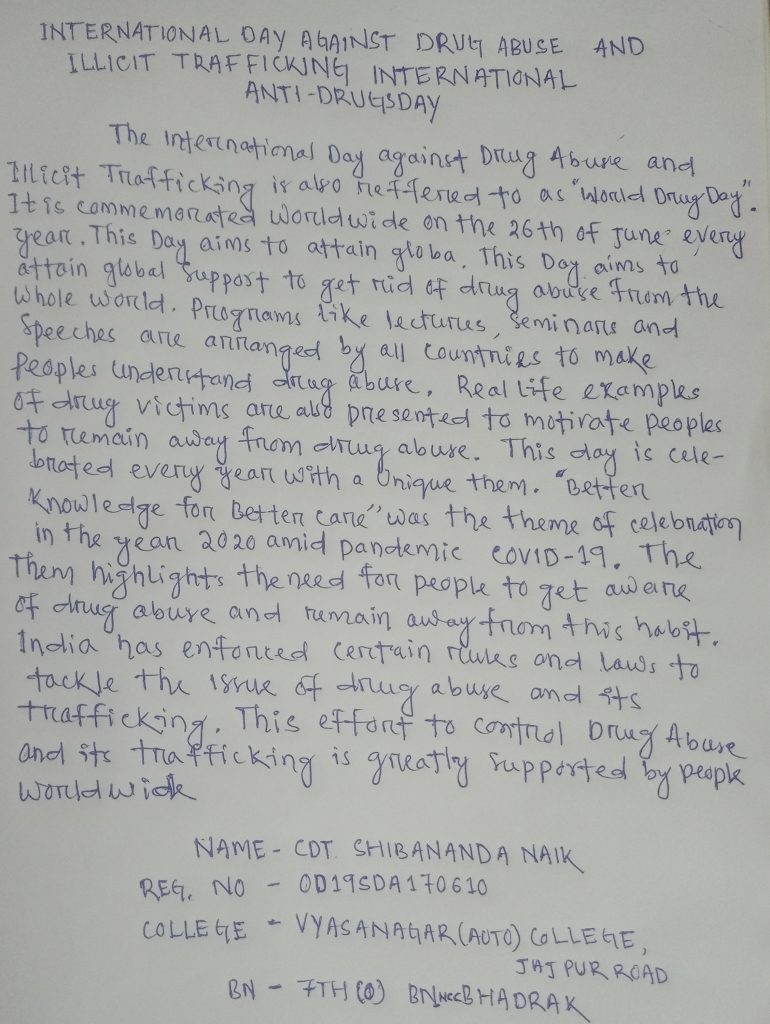 INTERNATIONAL DAY AGAINST DRUG ABUSE AND
ILLICIT TRAFFICKING INTERNATIONAL
ANTI-DRUGSDAY
The International Day against Drug Abuse and
Illicit Trafficking is also reffered to as "World Drug Day".
It is commemorated worldwide on the 26th of June every
year. This Day aims to attain globa. This Day aims to
attain global support to get rid of drug abuse from the
whole world. Programs like lectures, Seminars and
Speeches are arranged by all countries to make
Peoples understand drug abuse. Real life examples
of drug victims are also presented to motivate peoples
to remain away from drug abuse. This day is cele-
brated every year with a Unique them. "Better
Knowledge for Better care" was the theme of celebration
in the year 2020 amid pandemic COVID-19. The
Them highlights the need for people to get aware
of drug abuse and remain away from this habit.
India has enforced certain rules and laws to
tackle the issue of drug abuse and its
trafficking. This effort to control Drug Abuse
and its trafficking is greatly supported by people
worldwide
NAME - CDT. SHIBANANDA NAIK
REG. NO - OD19SDA170610
COLLEGE - VYASANAGAR (AUTO) COLLEGE,
JAJPUR ROAD
BN - 7TH (O) BN NCC BHADRAK